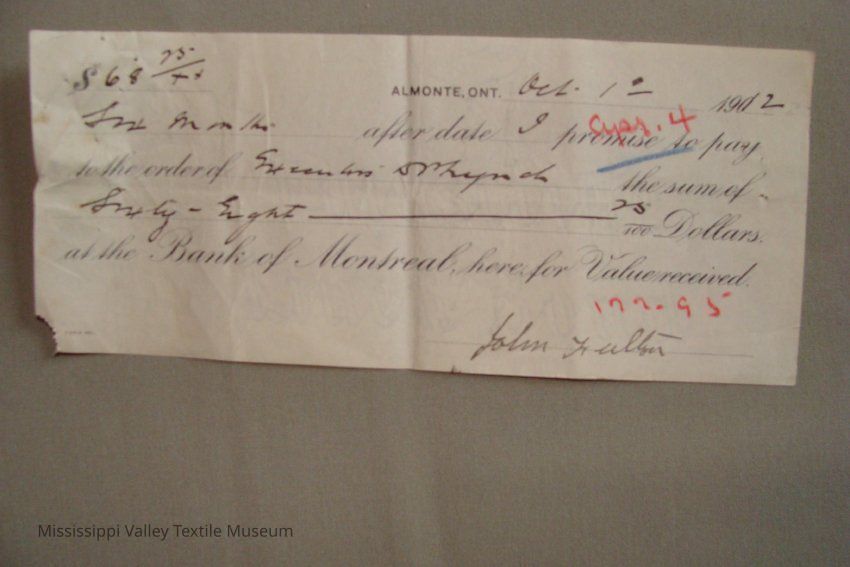 $ 68 25/xx
ALMONTE, ONT. Oct. 1st 1912
Six Months after date I promise to pay
Apr. 4
to the order of Executors the sum of
Sixty-Eight 25/100 Dollars.
at the Bank of Montreal, here, for Value received.
172.95
John Fulton
Mississippi Valley Textile Museum